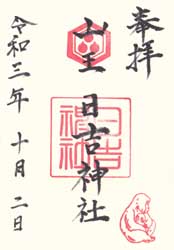 奉拝
山王
日吉神社
令和三年 十月 二日